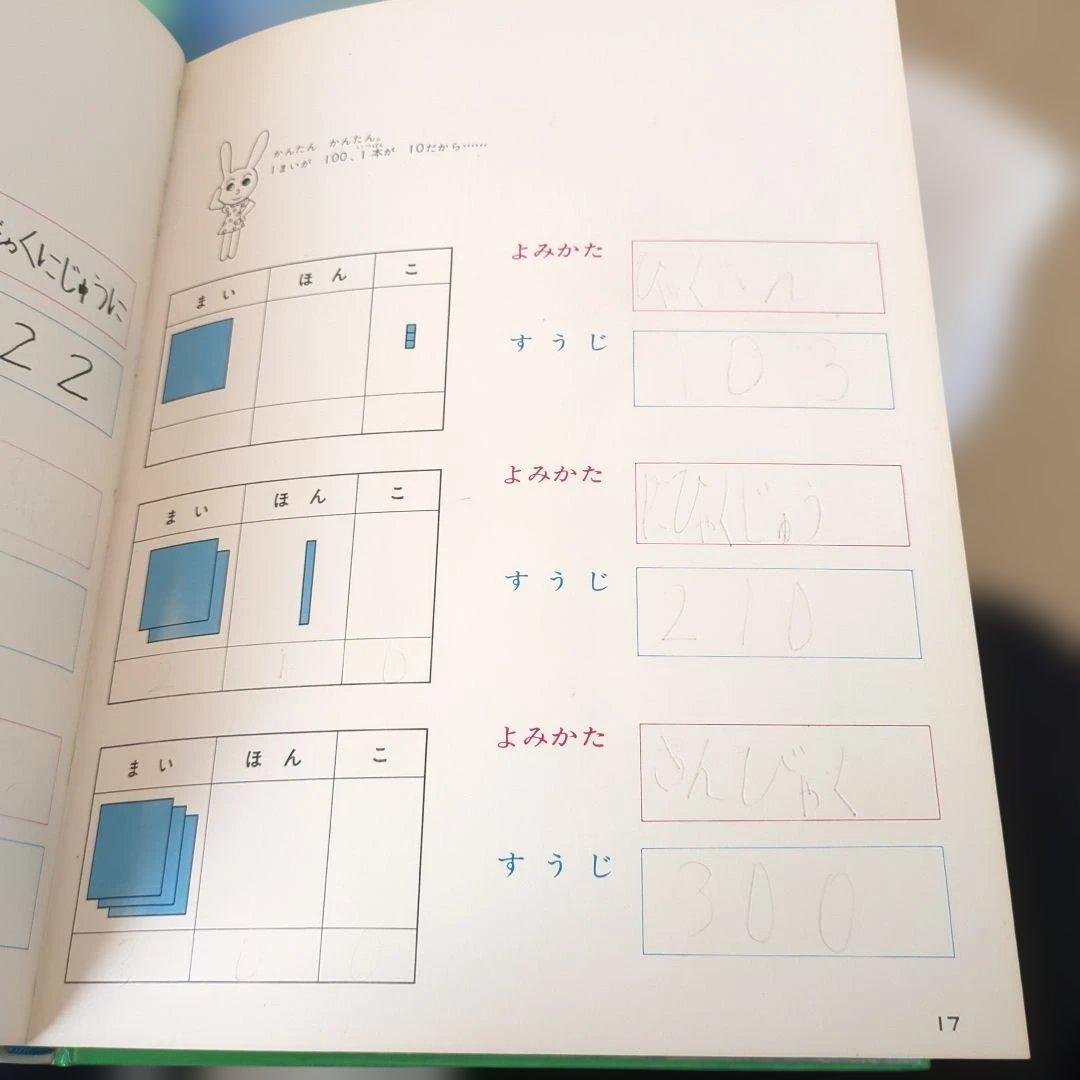 ゃくにじゅうに
22
かんたん かんたん。
1まいが 100、1本が 10だから……
いっぽん
まい ほん こ
よみかた ひゃくさん
すうじ 103
まい ほん こ
2 1 0
よみかた にひゃくじゅう
すうじ 210
まい ほん こ
3 0 0
よみかた さんびゃく
すうじ 300
17